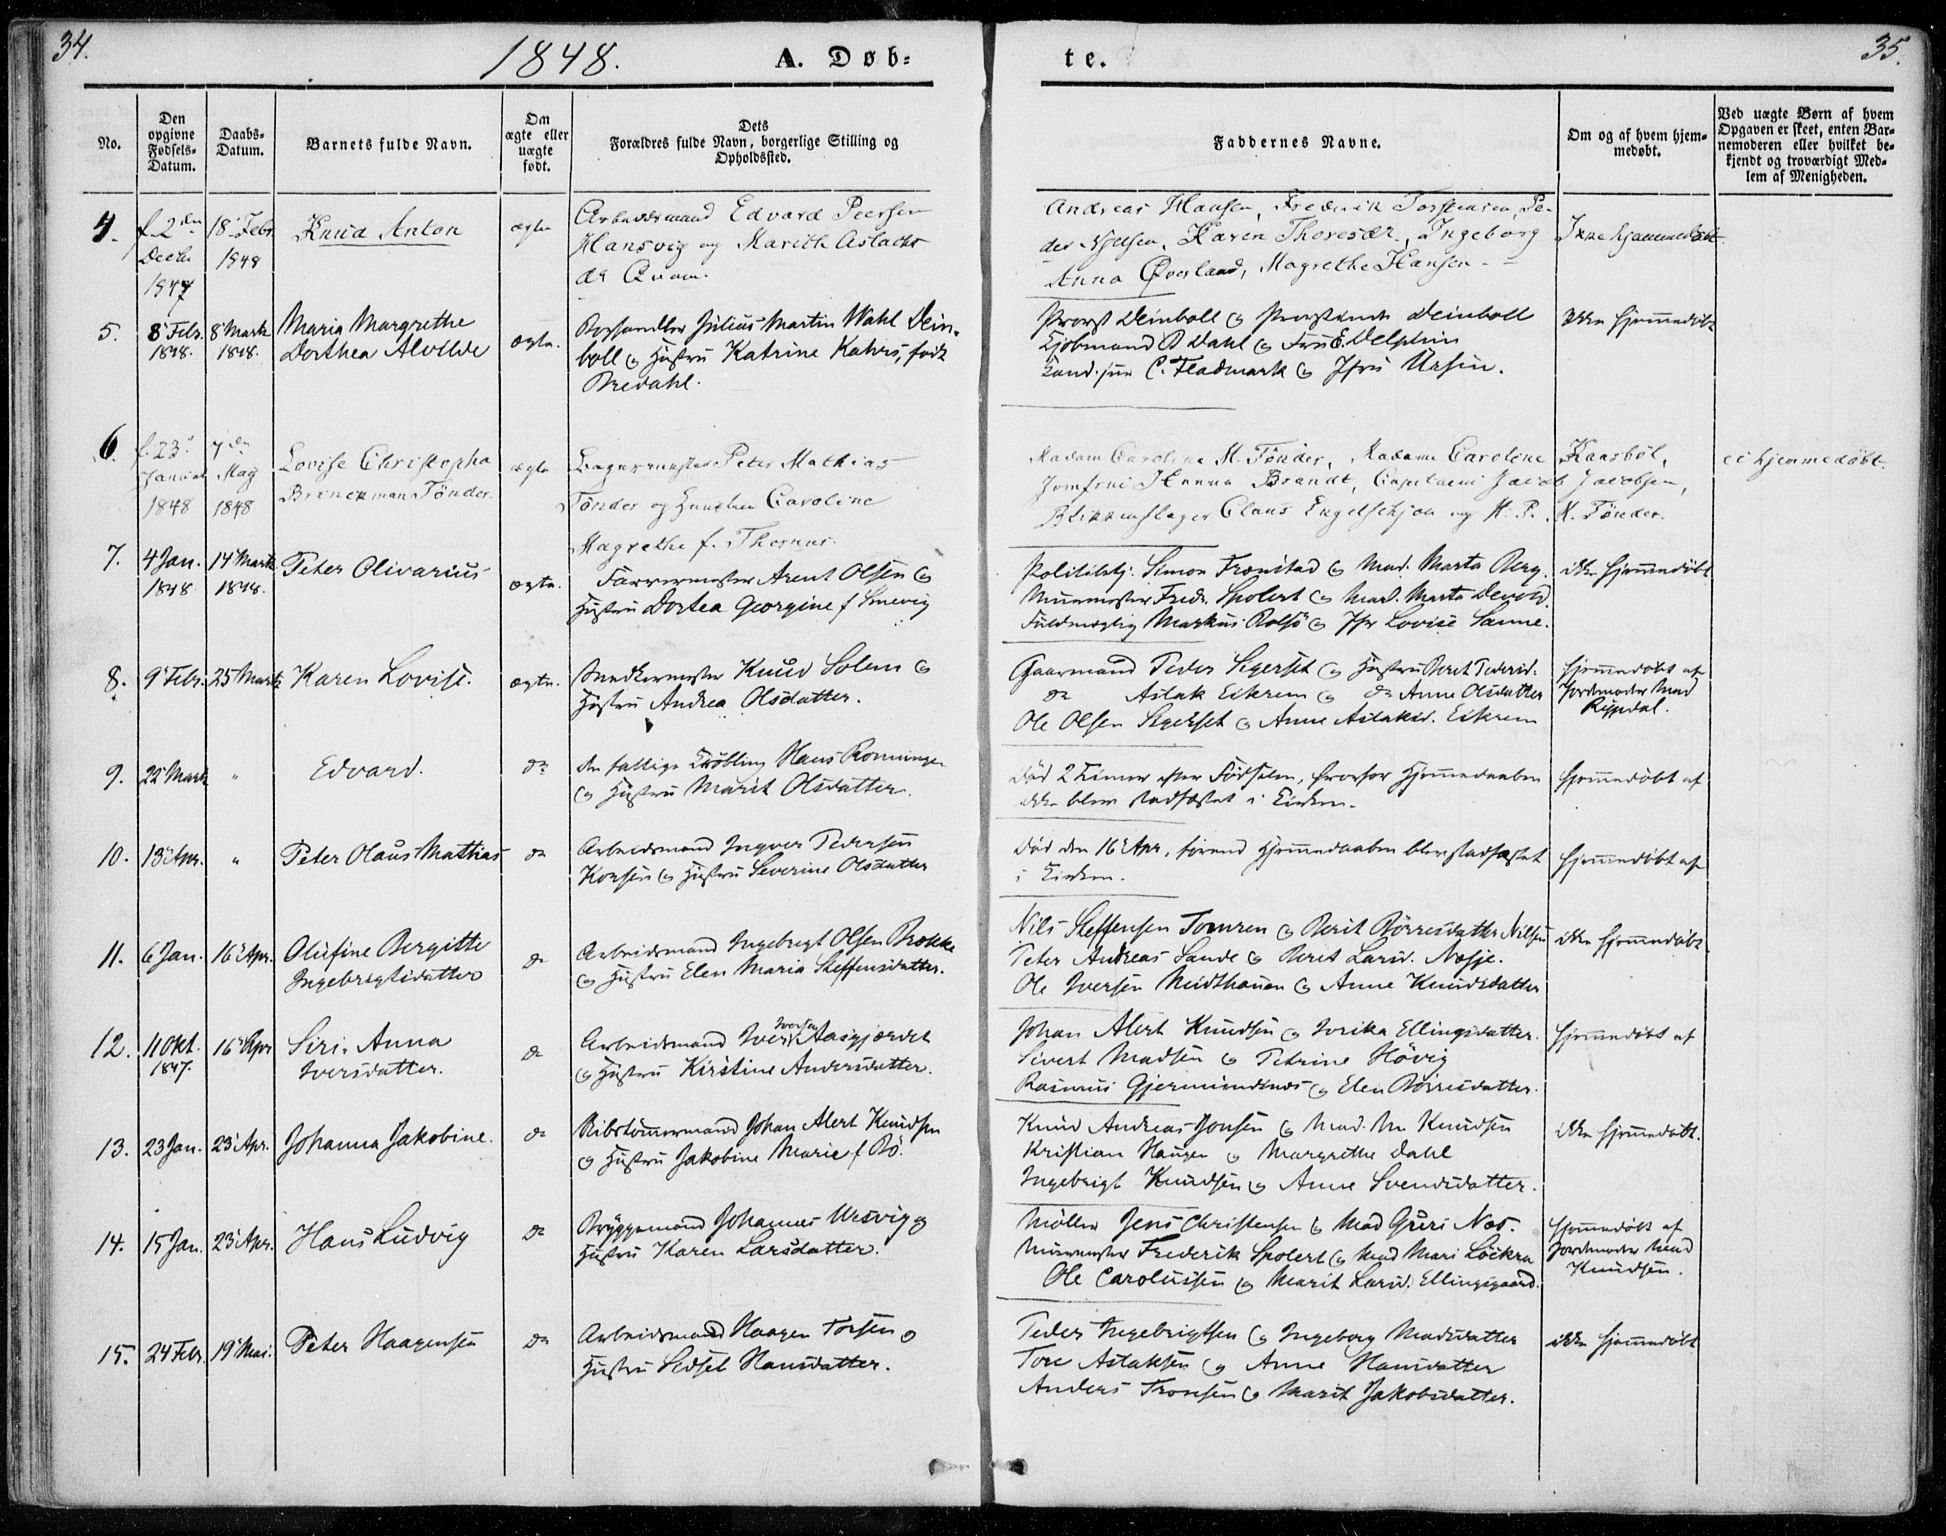 34.
1848.
A. Døb-
te.
35.
No.
Den opgivne Fødsels-Datum.
Daabs-Datum.
Barnets fulde Navn.
Om ægte eller uægte født.
Dets Forældres fulde Navn, borgerlige Stilling og Opholdssted.
Faddernes Navne.
Om og af hvem hjem-medøbt.
Ved uægte Børn af hvem Opgaven er skeet, enten Bar-nemoderen eller hvilket be-kjendt og troværdigt Med-lem af Menigheden.
4.
f. 2den Decbr. 1847
18 Febr. 1848
Knud Anton
ægte
Arbeidsmand Edvard Peersen
Hansvig og Marith Aslachs
dr Qvam.
Andreas Hansen, Frederik Torstensen, Pe-
der Nielsen, Karen Thoresdr., Ingeborg
Anna Øverland, Magrethe Hansen
Ikke hjemmedøbt
5.
8 Febr. 1848.
8 Marts 1848.
Maria Margrethe
Dorthea Alvilde
ægte.
Boghandler Julius Martin Wahl Dein-
boll og Hustru Katrine Kahrs, født
Bredahl.
Provst Deinboll og Provstinde Deinboll
Kjøbmand B Dahl og Fru E. Delphin
Kand. jur C. Fladmark og Jfru Ursin.
ikke hjemmedøbt
6.
f. 23 Januar 1848
7de Maij 1848
Lovise Christopha
Brinckman Tønder.
ægte
Bagermester Peter Mathias
Tønder og Hustru Caroline
Magrethe f. Thesnus.
Madam Caroline M. Tønder, Madame Caroline Kaasbøl,
Jomfrui Hanna Brandt, Capitaini Jacob Jacobsen,
Blikkenslager Claus Engelschjøn og H. P. K. Tønder.
ei hjemmedøbt
7.
4 Jan. 1848
14 Marts 1848.
Peter Olivarius
ægte.
Farvermester Arent Olsen og
Hustru Dortea Georgine f Smevig
Politibetj. Simon Frønstad og Mad. Marta Berg.
Murmester Fredr. Spolert og Mad. Marta Devold.
Fuldmægtig Markus Rolfsø og Jfr Lovise Sanne.
ikke hjemmedøbt
8.
9 Febr.
25 Marts
Karen Lovise.
ægte.
Snedkermester Knud Solem og
Hustru Andrea Olsdatter.
Gaarmand Peder Segerset og Hustru Beret Pedersd.
do Aslak Eikrem og do Anne Olsdatter
Ole Olsen Segerset og Anne Aslaksd. Eikrem
hjemmedøbt af
Jordmoder Mad
Rypdal.
9.
22 Marts
"
Edvard.
do
den fattige Krøbling Hans Rønningen
og Hustru Marit Olsdatter.
død 2 Timer efter Fødselen, hvorfor Hjemmedaaben
ikke blev stadfæstet i Kirken.
hjemmedøbt af
10.
13 Apr.
"
Peter Olaus Mathias
do
Arbeidsmand Ingver Pedersen
Korsen og Hustru Severine Olsdatter
død den 16 Apr. førend Hjemmedaaben blev stadfæstet
i Kirken.
hjemmedøbt af
11.
6 Jan.
16 Apr.
Olufine Bergitte
Ingebrigtsdatter
do
Arbeidsmand Ingebrigt Olsen Brokke
og Hustru Elen Maria Steffensdatter.
Nils Steffensen Tomren og Berit Børresdatter Nilsen
Peter Andreas Sande og Beret Larsd. Nøsje.
Ole Iversen Meidthauen og Anne Knudsdatter
ikke hjemmedøbt
12.
11 Okt. 1847.
16 Apr
Siri Anna
Iversdatter.
do
Arbeidsmand Iver Iversen Aasgjærdet
og Hustru Kirstine Andersdatter.
Johan Alert Knudsen og Ivrika Ellingsdatter.
Sivert Madsen og Petrine Høvig
Rasmus Gjermundnæs og Elen Børresdatter.
hjemmedøbt af
13.
23 Jan.
23 Apr.
Johanna Jakobine.
do
Skibstømmermand Johan Alert Knudsen
og Hustru Jakobine Marie f Bø.
Knud Andreas Jonsen og Mad. Knudsen
Kristian Haugen og Margrethe Dahl
Ingebrigt Knudsen og Anne Svendsdatter.
ikke hjemmedøbt.
14.
15 Jan.
23 Apr.
Hans Ludvig
do
Bryggemand Johannes Ursvig og
Hustru Karen Larsdatter.
Møller Jens Christensen og Mad Guri Næs.
Murmester Frederik Spolert og Mad Mari Løckra
Ole Carolussen og Marit Larsd. Ellingsgaard.
hjemmedøbt af
Jordmoder Mad
Knudsen.
15.
24 Febr.
19 Mai.
Peter Haagensen
do
Arbeidsmand Haagen Torsen og
Hustru Sedsel Hansdatter.
Peder Ingebrigtsen og Ingeborg Madsdatter
Tore Aslaksen og Anne Hansdatter
Anders Tronsen og Marit Jakobsdatter.
ikke hjemmedøbt